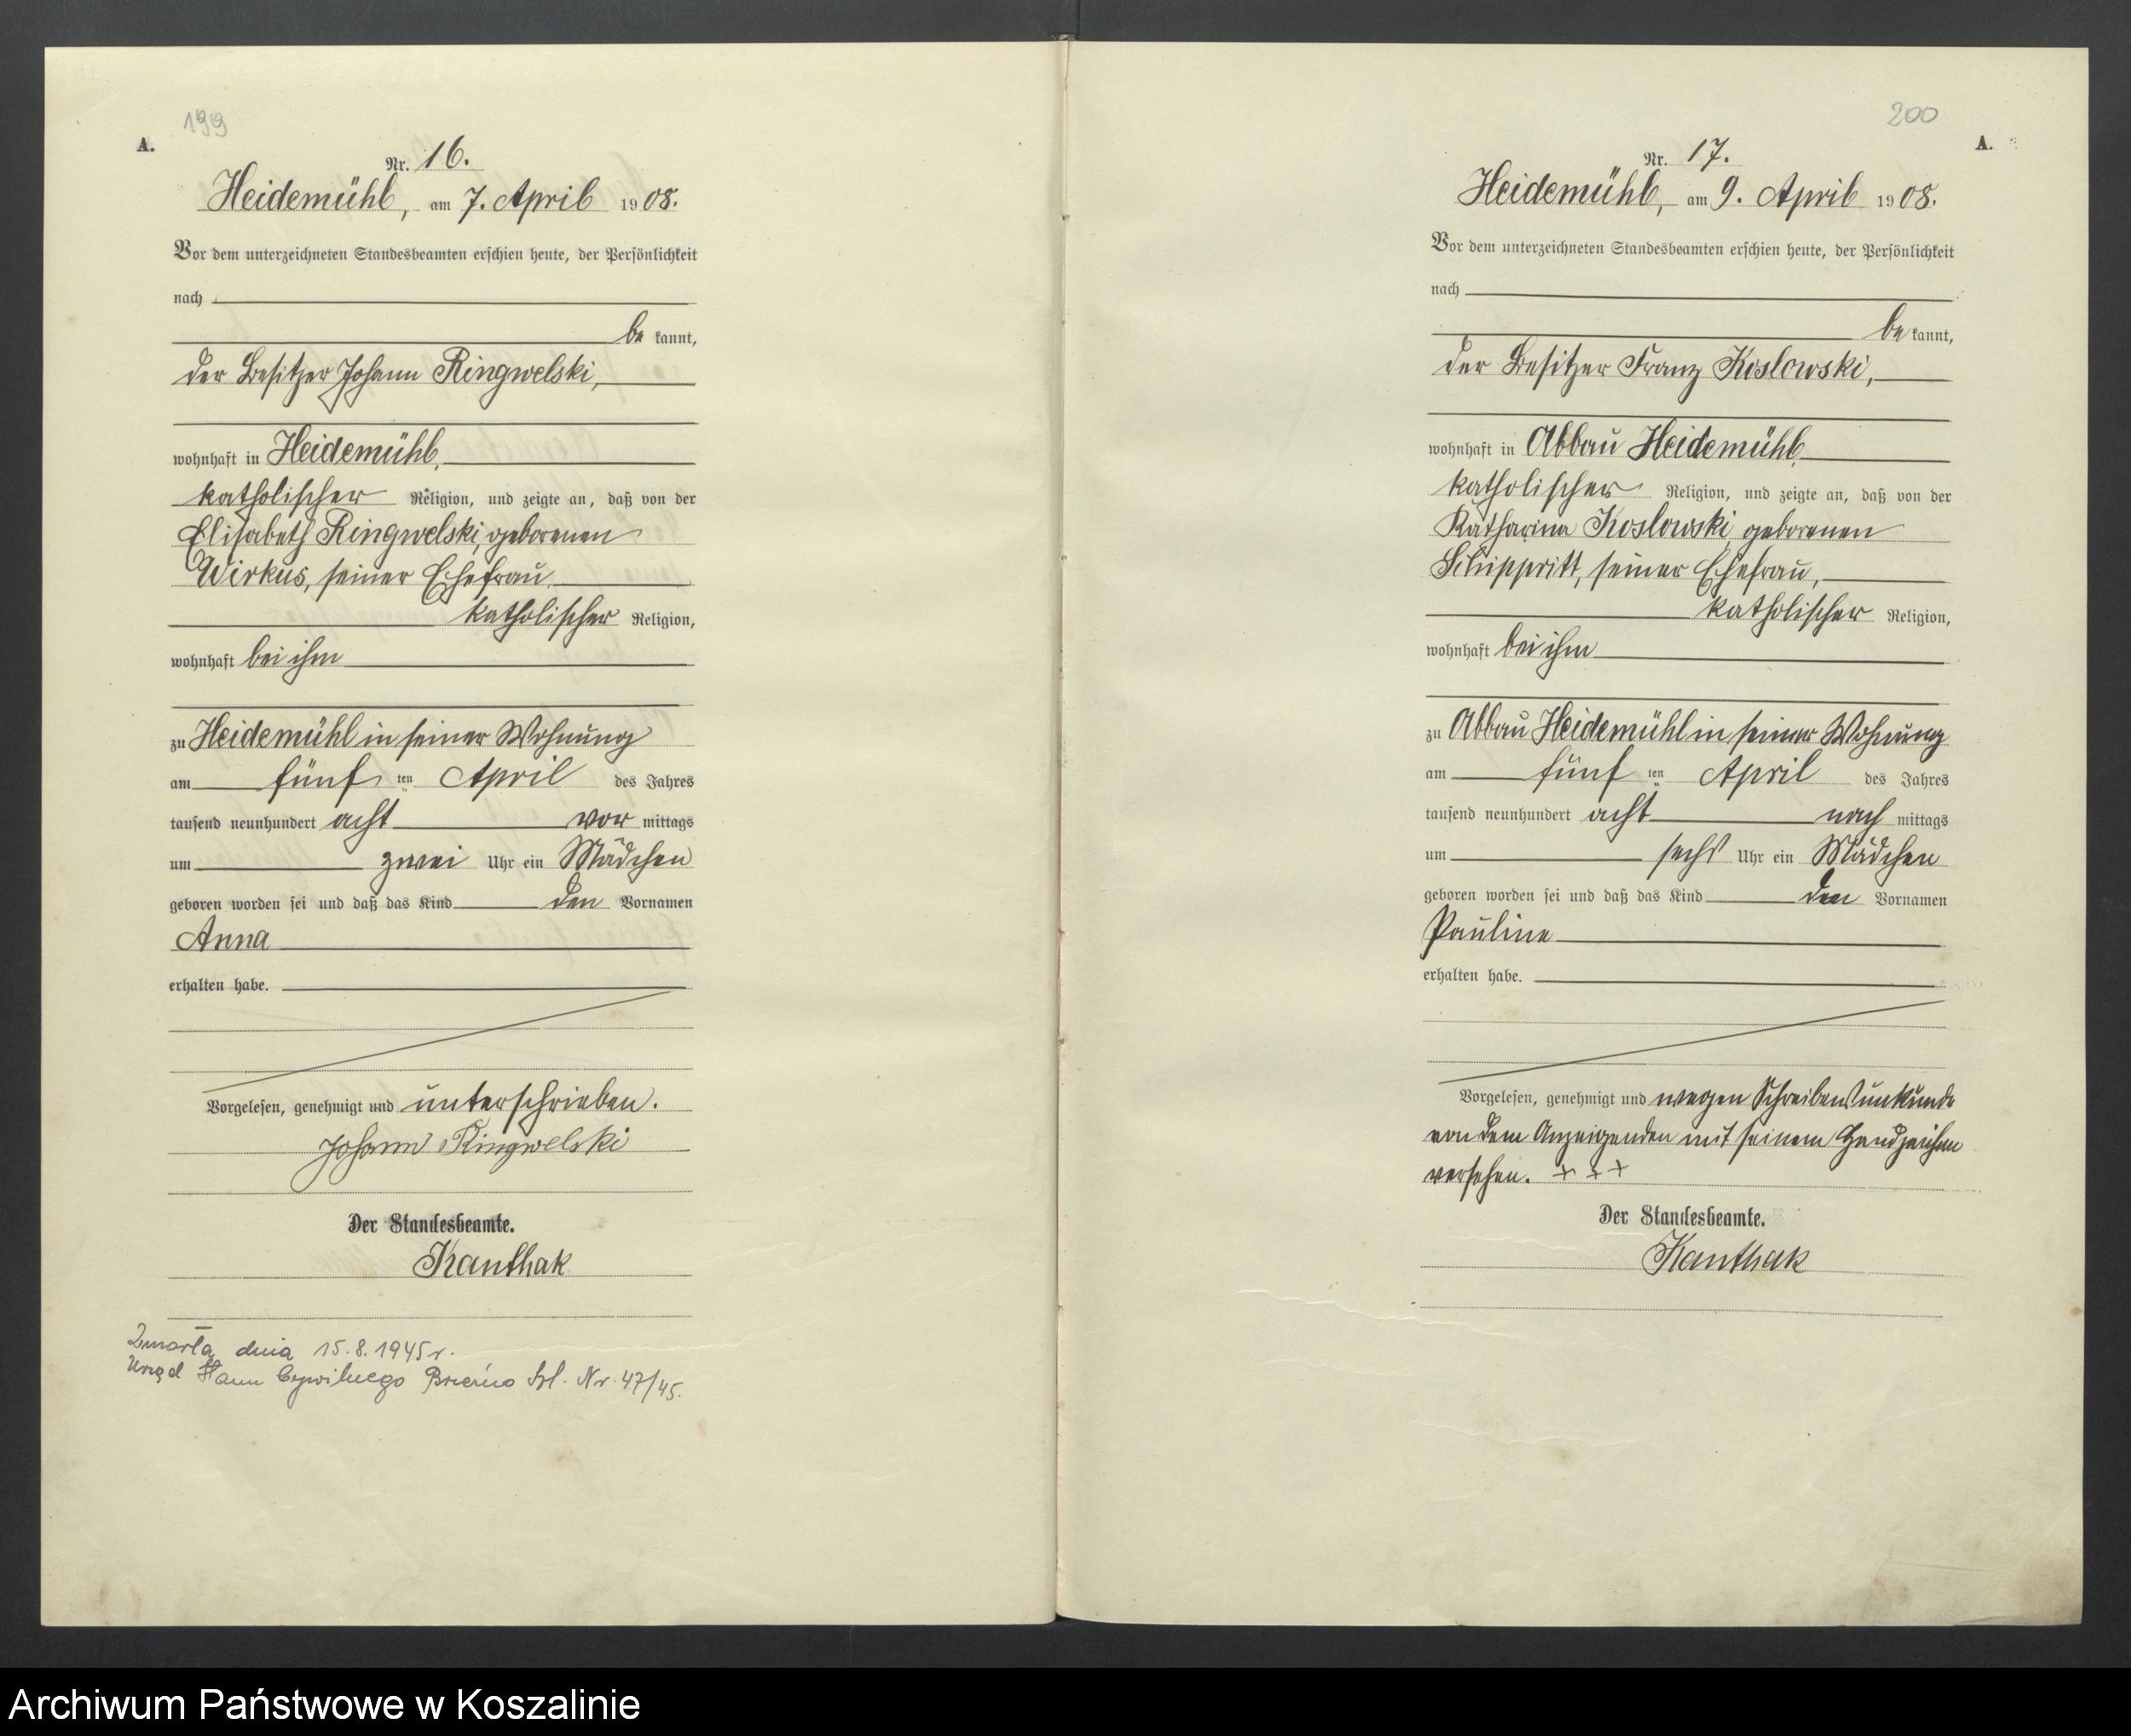 199
A.
Nr. 16.
Heidemühl, am 7. April 1908.
Vor dem unterzeichneten Standesbeamten erschien heute, der Persönlichkeit
nach
be kannt,
der Besitzer Johann Ringwelski,
wohnhaft in Heidemühl,
katholischer Religion, und zeigte an, daß von der
Elisabeth Ringwelski, geborenen
Wirkus, seiner Ehefrau
katholischer Religion,
wohnhaft bei ihm
zu Heidemühl in seiner Wohnung
am fünf ten April des Jahres
tausend neunhundert acht vor mittags
um zwei Uhr ein Mädchen
geboren worden sei und daß das Kind den Vornamen
Anna
erhalten habe.
Vorgelesen, genehmigt und unterschrieben.
Johann Ringwelski
Der Standesbeamte.
Kanthak
Zmarła dnia 15.8.1945 r.
Urząd Stanu Cywilnego Brzeźno Szl. Nr. 47/45.
200
A.
Nr. 17.
Heidemühl, am 9. April 1908.
Vor dem unterzeichneten Standesbeamten erschien heute, der Persönlichkeit
nach
be kannt,
der Besitzer Franz Koslowski,
wohnhaft in Abbau Heidemühl,
katholischer Religion, und zeigte an, daß von der
Katharina Koslowski, geborenen
Schippritt, seiner Ehefrau,
katholischer Religion,
wohnhaft bei ihm
zu Abbau Heidemühl in seiner Wohnung
am fünf ten April des Jahres
tausend neunhundert acht nach mittags
um sechs Uhr ein Mädchen
geboren worden sei und daß das Kind den Vornamen
Pauline
erhalten habe.
Vorgelesen, genehmigt und wegen Schreibensunkunde
von dem Anzeigenden mit seinem Handzeichen
versehen. + + +
Der Standesbeamte.
Kanthak
Archiwum Państwowe w Koszalinie